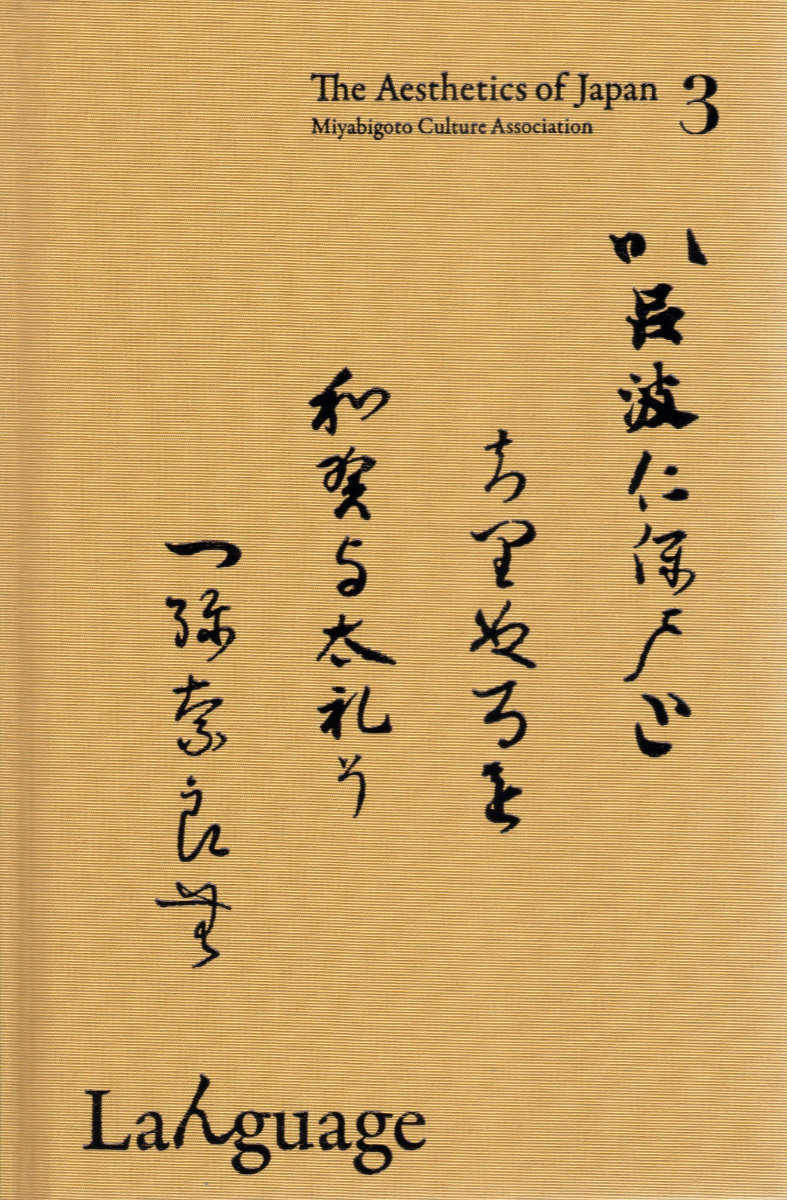 The Aesthetics of Japan 3
Miyabigoto Culture Association
以呂波仁保へ止
ち里ぬるを
和賀与太礼そ
つ祢奈良無
Laんguage